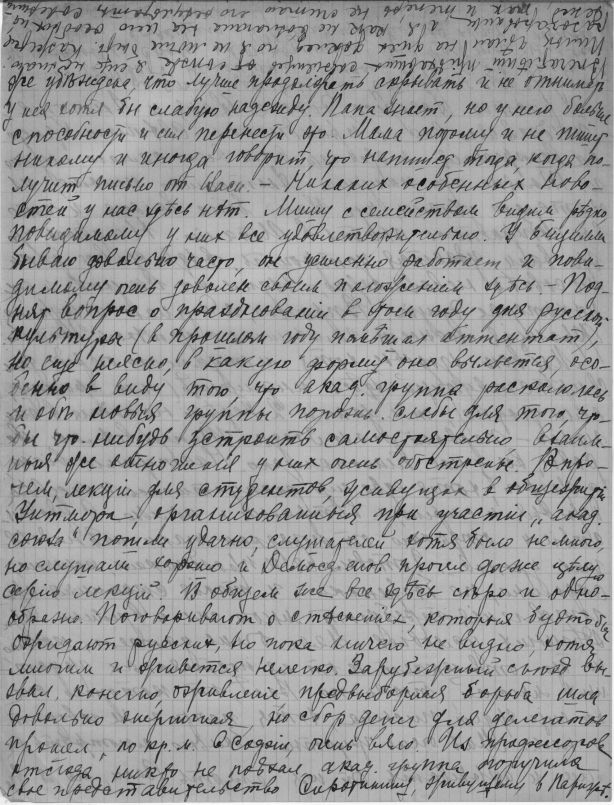 же убѣждена, что лучше продолжать скрывать и не отнимать
у нея хотя бы слабую надежду. Папа знает, но у него больше
способности и сил перенести это. Мама потому и не пишет
никому и иногда говорит, что напишет тогда, когда по-
лучит письмо от Васи. – Никаких особенных ново-
стей у нас здѣсь нѣт. Мишу с семейством видим рѣдко
повидимому у них все удовлетворительно. У
бываю довольно часто, он усиленно работает и пови-
димому очень доволен своим положеніем здѣсь. – Под-
нят вопрос о празднованіи в этом году дня русской
культуры (в прошлом году помѣшал аттентат),
но еще неясно, в какую форму оно выльется, осо-
бенно в виду того, что акад. группа раскололась
и обѣ новыя группы порознь слабы для того, чт-
бы чт.-нибудь устроить самостоятельно взаим-
ныя же отношенія у них очень обострены. Впро-
чем, лекціи для студентов, живущих в общежитіи
Уитмора, организованныя при участіи „акад.
союза" пошли удачно, слушателей хотя было немного,
но слушали хорошо и прочел даже цѣлую
серію лекцій. В общем же все здѣсь сѣро и одно-
образно. Поговаривают о стѣсненіях, которыя будто бы
ожидают русских, но пока ничего не видно, хотя
многим и живется нелегко. Зарубежный съѣзд вы-
звал, конечно, оживленіе предвыборная борьба шла
довольно энергичная но сбор денег для делегатов
прошел, по кр. м. в Софіи, очень вяло. Из профессоров
отсюда никто не поѣхал акад. группа поручила
свое представительство живущему в Париже.